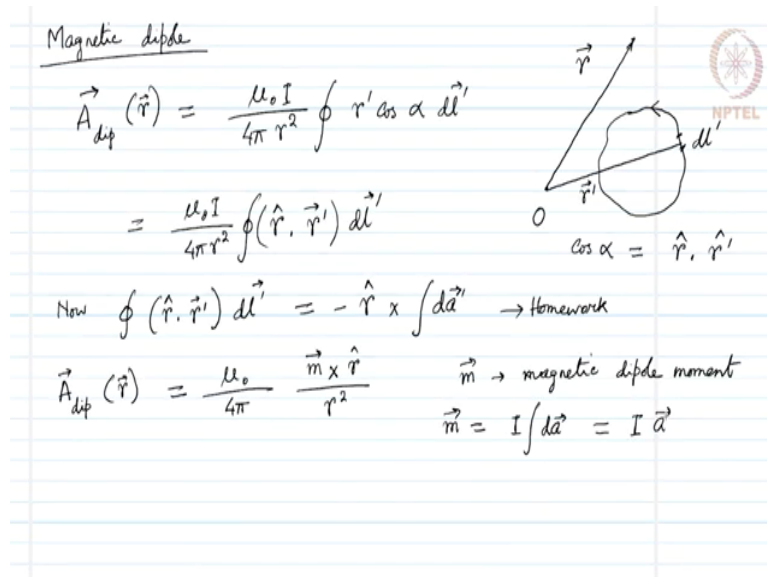 Magnetic dipole
NPTEL
A⃗_dip (r⃗) = μ₀I / 4π r² ∮ r′ cos α dl⃗′
r⃗
dl′
r⃗′
O
= μ₀I / 4πr² ∮(r̂ . r⃗′) dl⃗′
cos α = r̂ . r̂′
Now ∮ (r̂ . r⃗′) dl⃗′ = − r̂ × ∫da⃗′ → Homework
A⃗_dip (r⃗) = μ₀ / 4π m⃗ × r̂ / r²
m⃗ → magnetic dipole moment
m⃗ = I ∫da⃗ = I a⃗